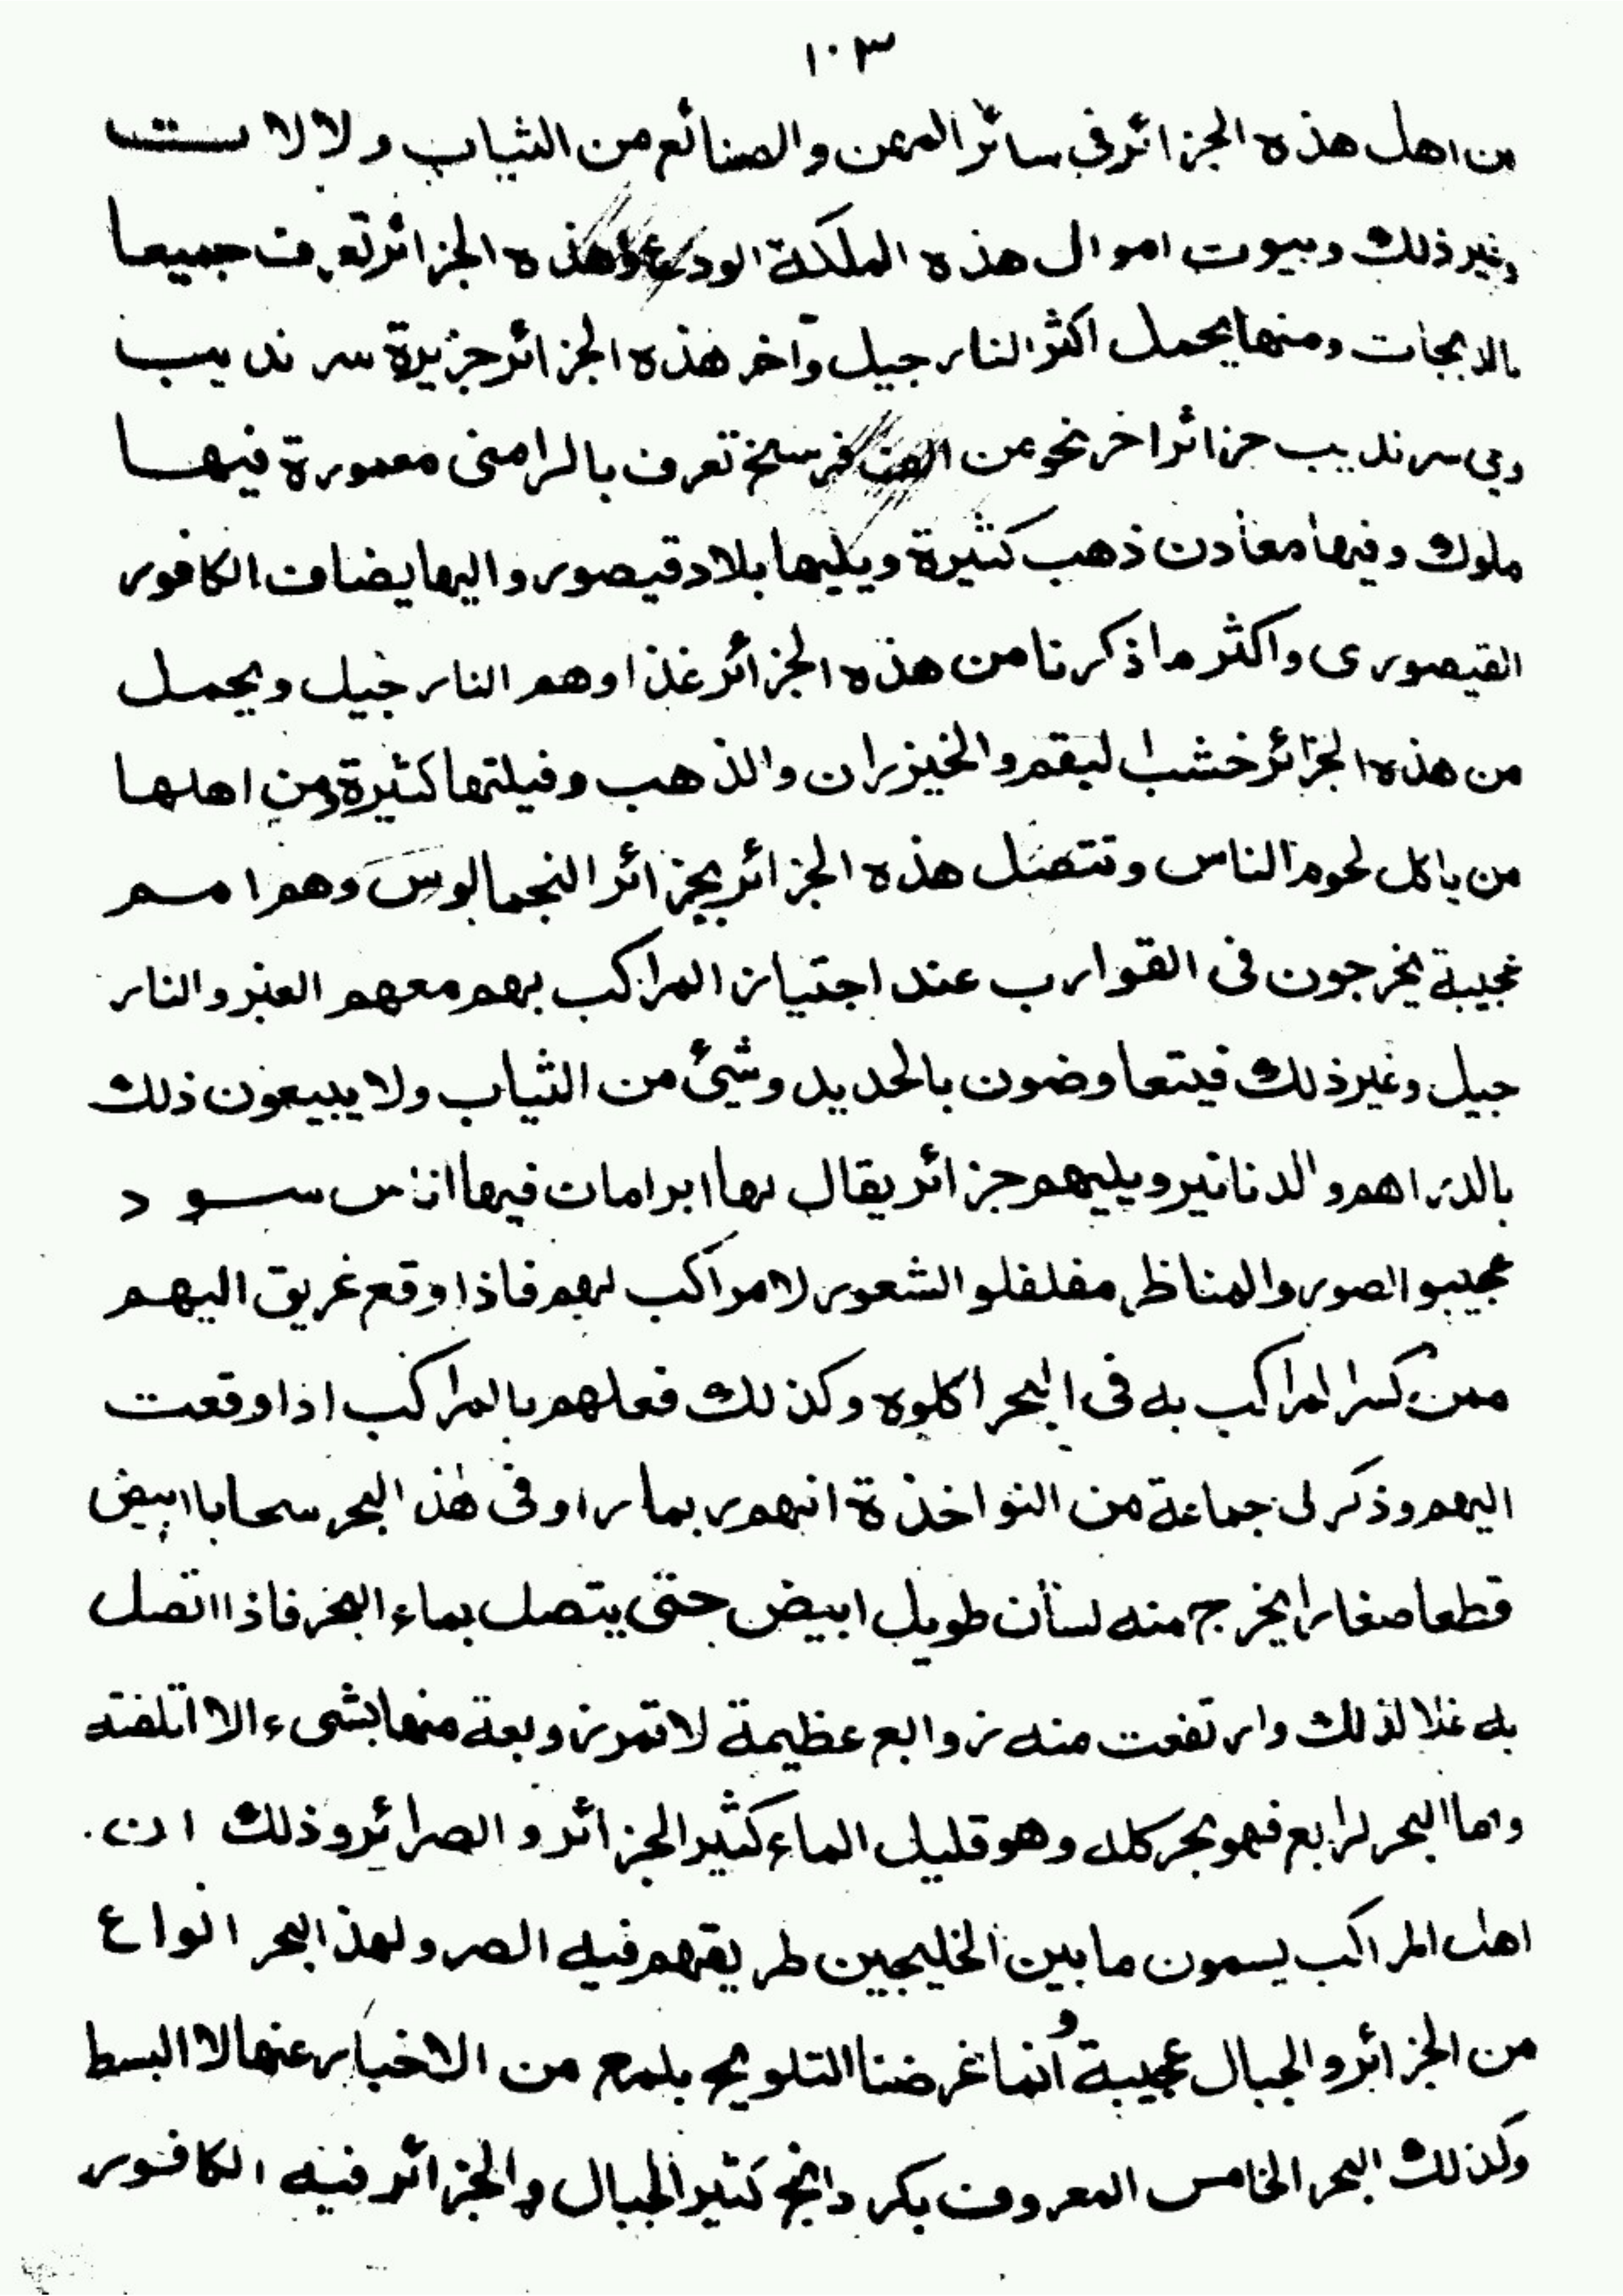 ١٠٣
من اهل هذه الجزائر فى سائر المهن والصنائع من الثياب ولالات
وغير ذلك وبيوت اموال هذه المملكة الودع وهذه الجزائر تعرف جميعا
بالدبيجات ومنها يحمل اكثر النارجيل وآخر هذه الجزائر جزيرة سرنديب
وبى سرنديب جزائر اخر نحو من الف فرسخ تعرف بالرامنى معمورة فيها
ملوك وفيها معادن ذهب كثيرة ويليها بلاد قيصور واليها يضاف الكافور
القيصورى واكثر ما ذكرنا من هذه الجزائر غذاوهم النارجيل ويحمل
من هذه الجزائر خشب البقم والخيزران والذهب وفيلتها كثيرة ومن اهلها
من ياكل لحوم الناس وتتصل هذه الجزائر بجزائر النجمالوس وهم امم
عجيبة يخرجون فى القوارب عند اجتياز المراكب بهم معهم العنبر والنار
جيل وغير ذلك فيتعاوضون بالحديد وشيئ من الثياب ولا يبيعون ذلك
بالدراهم والدنانير ويليهم جزائر يقال لها ابرامات فيها اناس سود
عجيبو الصور والمناظر مفلفلو الشعور لا مراكب لهم فاذا وقع غريق اليهم
ممن كسر المراكب به فى البحر اكلوه وكذلك فعلهم بالمراكب اذا وقعت
اليهم وذكر لى جماعة من النواخذة انهم ربما راوفى هذ البحر سحابا ابيض
قطعا صغارا يخرج منه لسان طويل ابيض حتى يتصل بماء البحر فاذا اتصل
به غلا لذلك وارتفعت منه زوابع عظيمة لا تمر زوبعة منها بشىء الا اتلفته
واما البحر الرابع فهو بحر كله وهو قليل الماء كثير الجزائر والصرائر وذلك ان
اهل المراكب يسمون ما بين الخليجين طريقهم فيه الصر ولهذ البحر انواع
من الجزائر والجبال عجيبة وانما غرضنا التلويح بلمع من الاخبار عنها لا البسط
وكذلك البحر الخامس المعروف بكردانج كثير الجبال والجزائر فيه الكافور